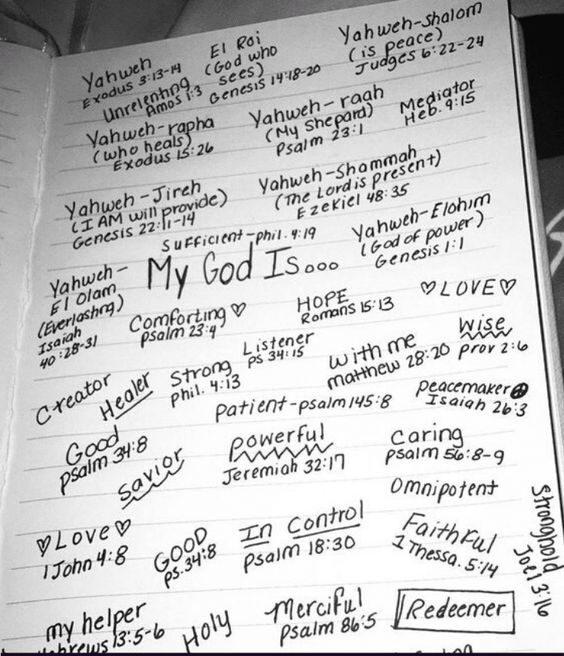 Yahweh
Exodus 3:13-14
El Roi
(God who
sees)
Genesis 14:18-20
Yahweh-Shalom
(is peace)
Judges 6:22-24
Unrelenting
Amos 1:3
Yahweh-rapha
(who heals)
Exodus 15:26
Yahweh-raah
(My Shepard)
Psalm 23:1
Mediator
Heb. 9:15
Yahweh-Jireh
(I AM will provide)
Genesis 22:11-14
Yahweh-Shammah
(The Lord is present)
Ezekiel 48:35
Sufficient-phil. 4:19
Yahweh-Elohim
(God of power)
Genesis 1:1
Yahweh-
El Olam
(Everlashng)
Isaiah
40:28-31
My God Is...
Comforting♡
psalm 23:4
HOPE
Romans 15:13
♡LOVE♡
Creator
Healer
Strong
phil. 4:13
Listener
ps 34:15
with me
matthew 28:20
Wise
prov 2:6
patient-psalm 145:8
peacemaker☮
Isaiah 26:3
Good
psalm 34:8
savior
powerful
Jeremiah 32:17
Caring
psalm 56:8-9
Omnipotent
Stronghold
Joel 3:16
♡Love♡
1 John 4:8
GOOD
ps. 34:8
In Control
psalm 18:30
Faithful
1 Thessa. 5:14
my helper
Hebrews 13:5-6
Holy
Merciful
Psalm 86:5
Redeemer